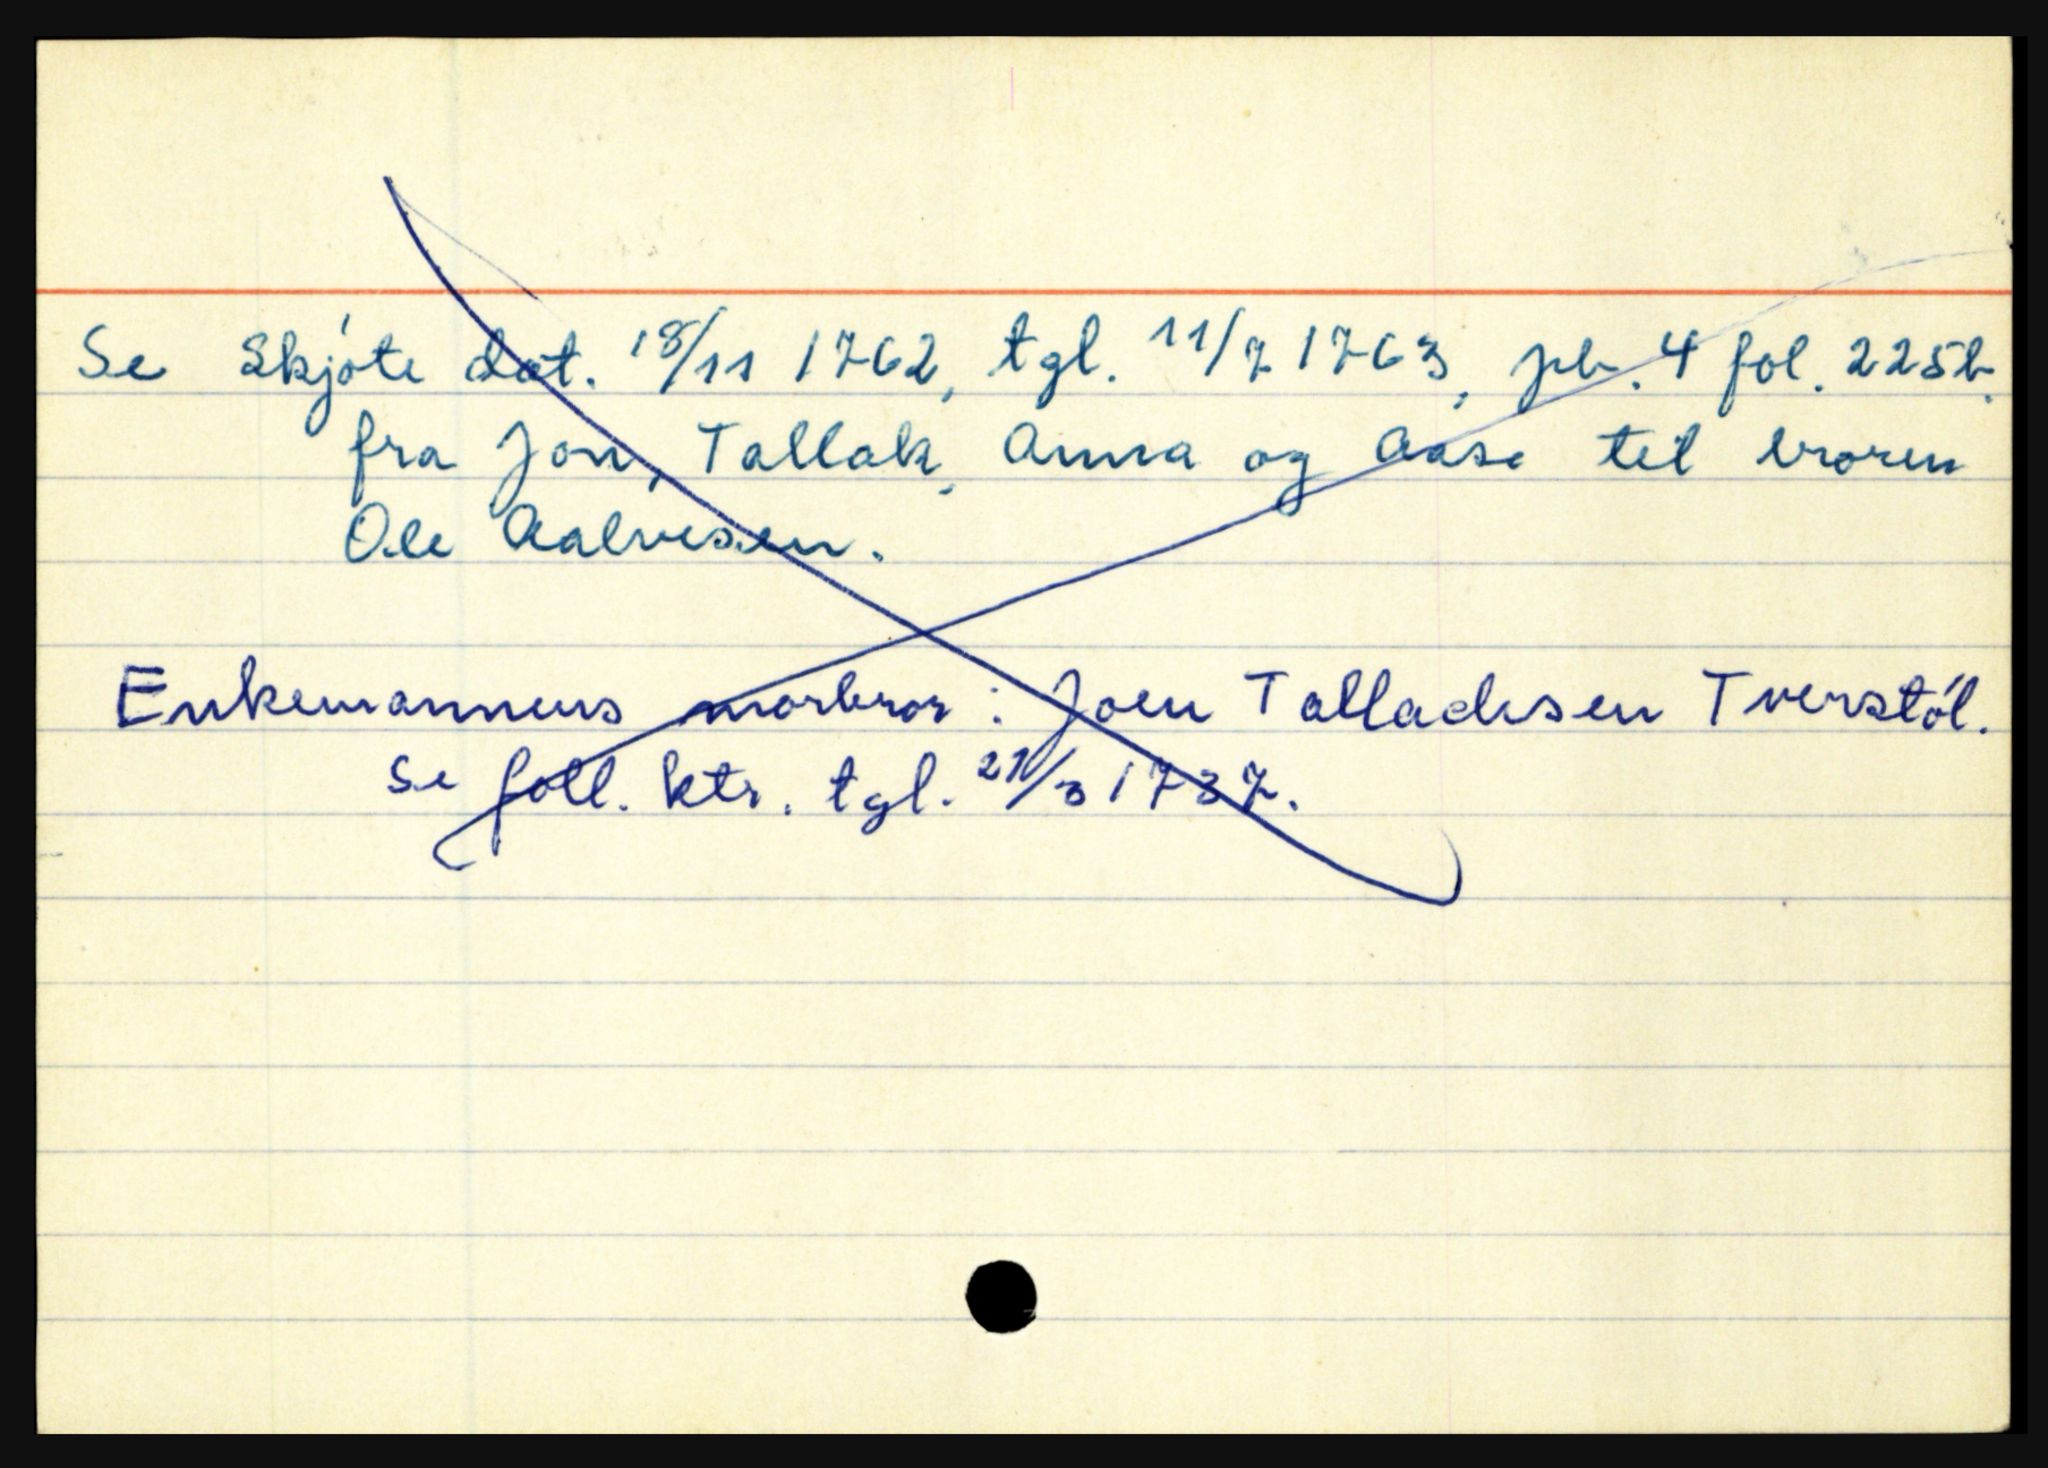 Se Skjöte dat. 18/11 1762, tgl. 11/7 1763, pb. 4 fol. 225b.
fra Jon, Tallak, Anna og Aase til broren
Ole Aalvesen.
Enkemannens morbror: Joen Talladisen Tverstöl.
Se foll. ktr. tgl. 21/3 1737.